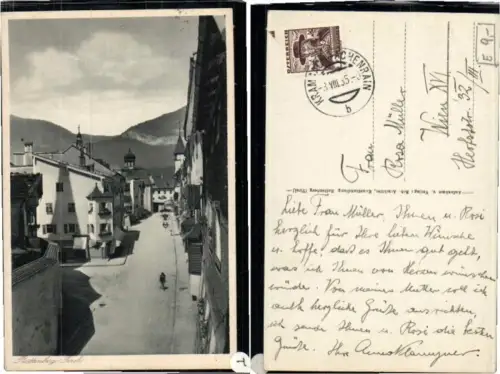 Rattenberg Tirol
ÖSTERREICH
KRAM
CHENRAIN
VIII.35
b
E 9,-
Frau
Rosa Müller
Wien
Liebe Frau Müller, Ihnen u. Rosi
herzlich für Ihre lieben Wünsche
u. hoffe, daß es Ihnen gut geht,
was ich Ihnen von Herzen wünschen
würde. Von meiner Mutter soll ich
auch herzliche Grüße ausrichten,
ich sende Ihnen u. Rosi die besten
Grüße. Ihre